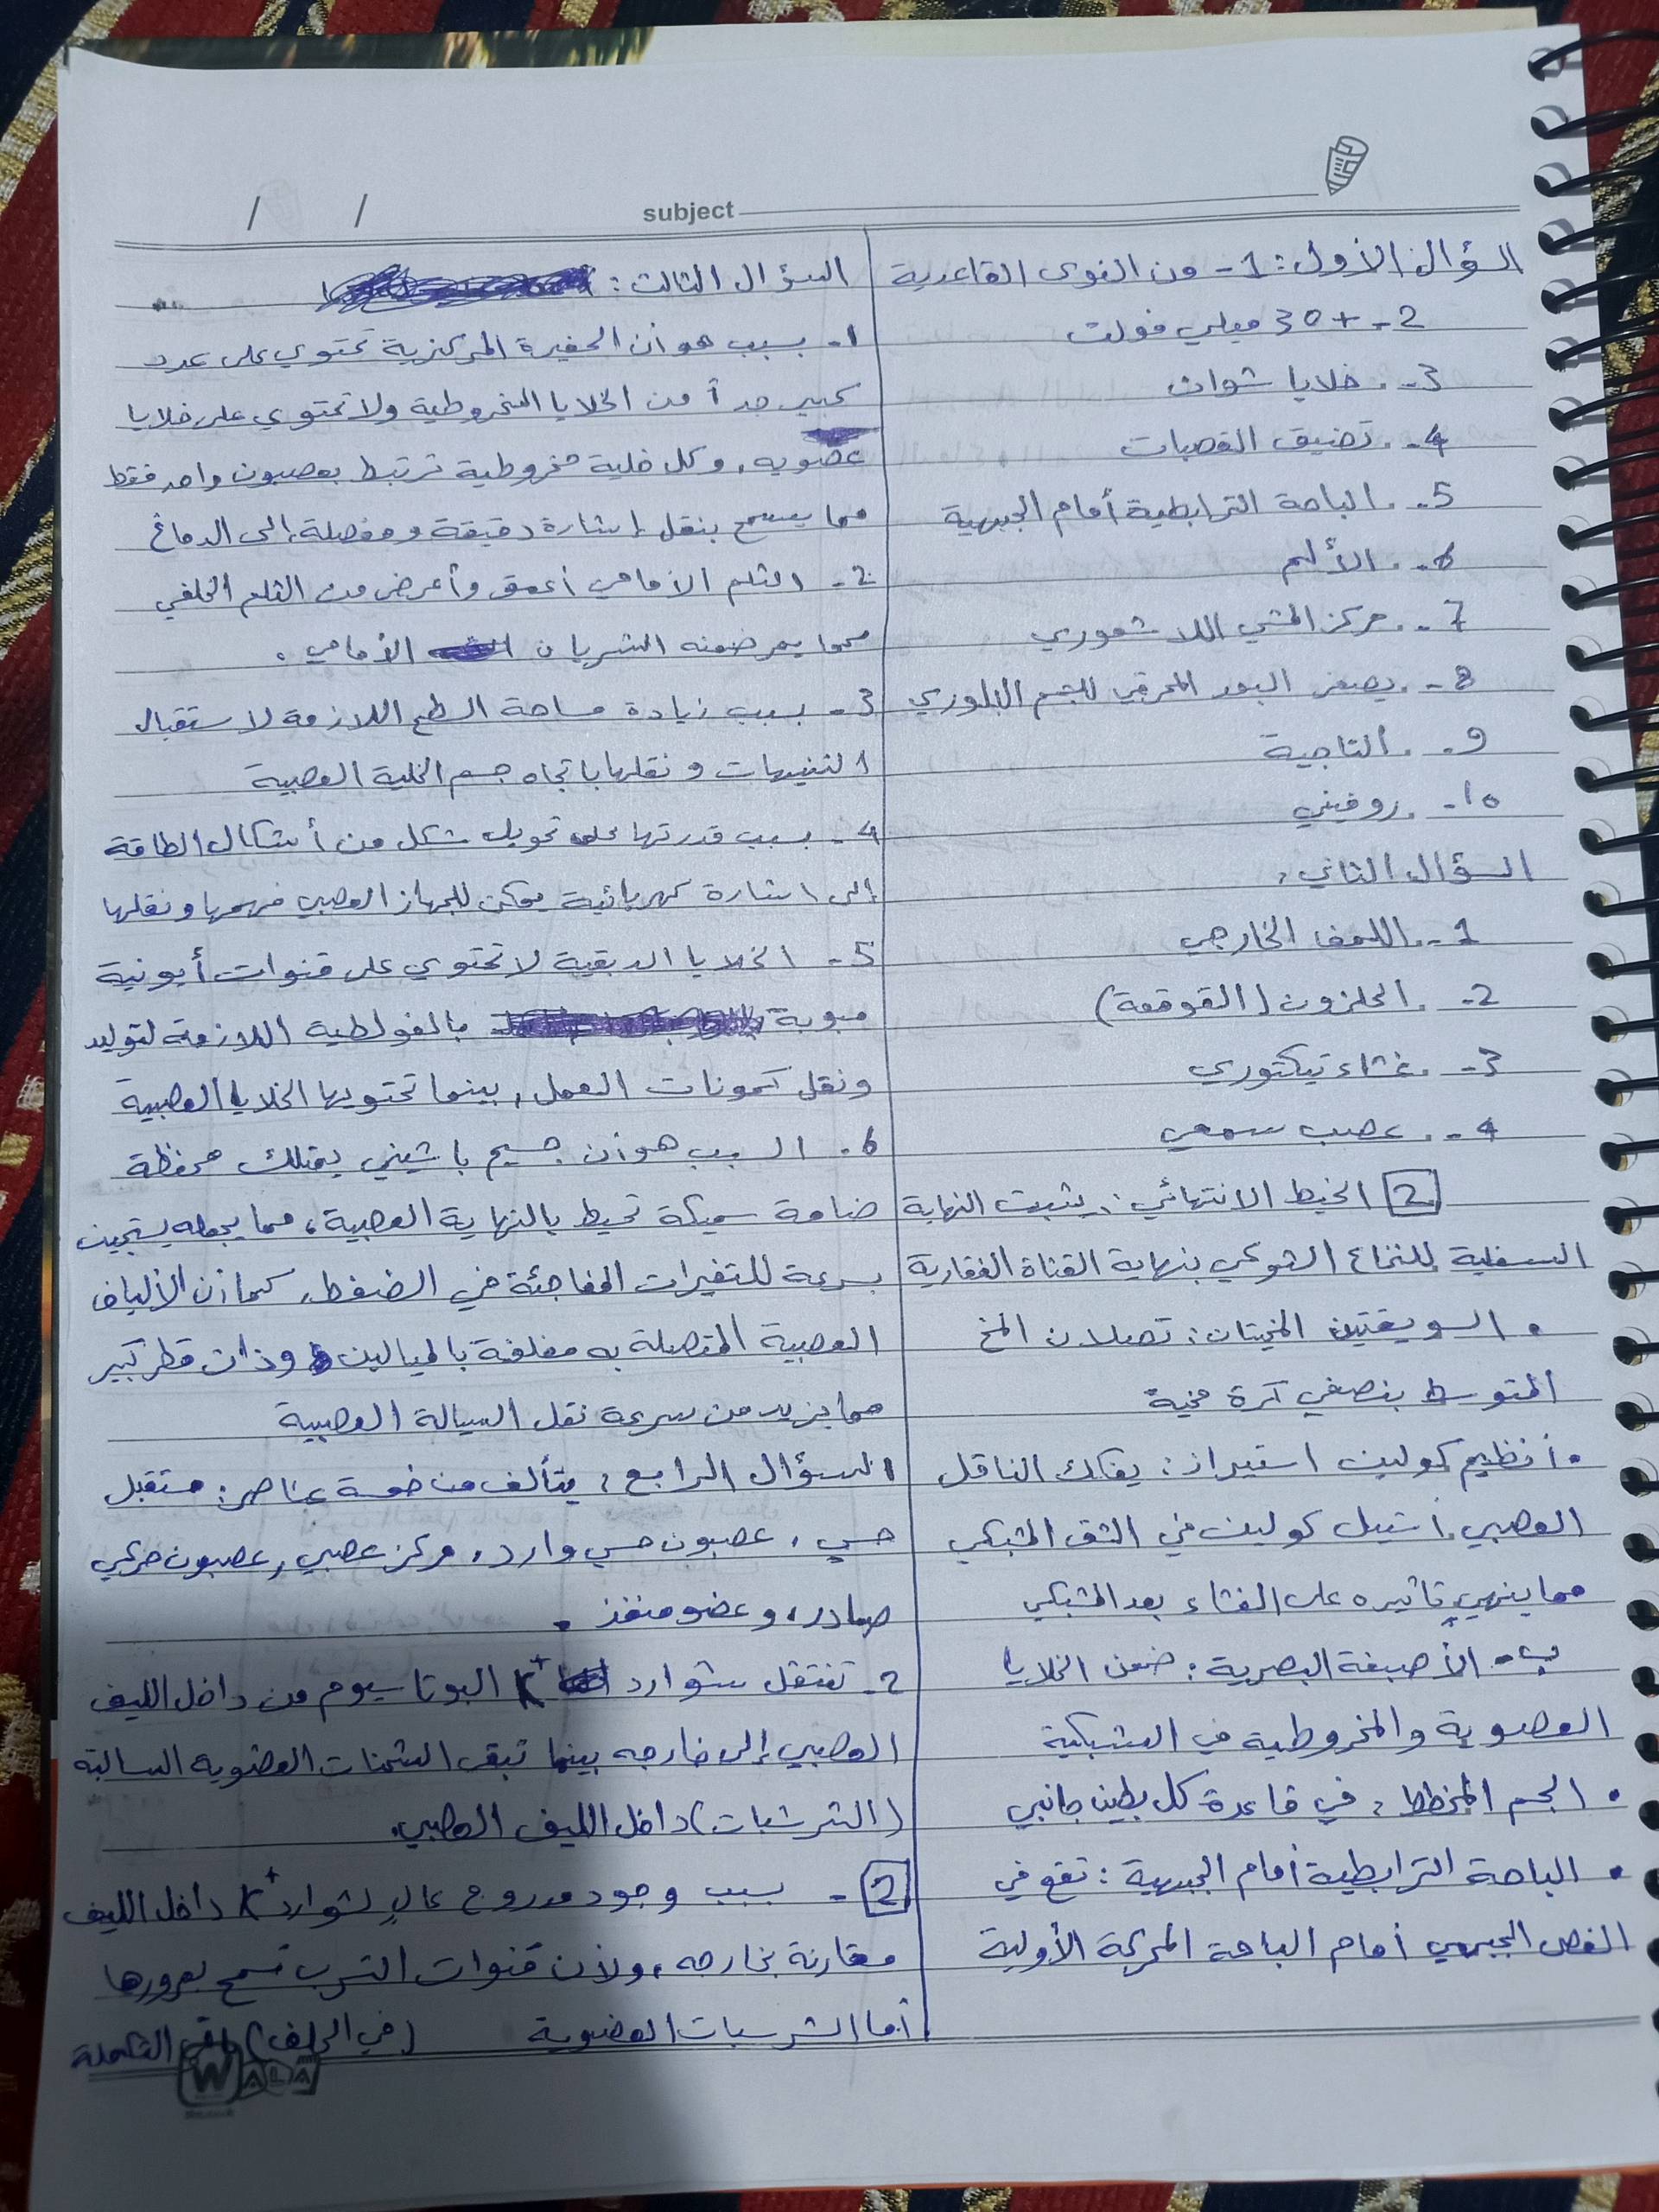 subject
/ /
السؤال الأول: 1- من النوى القاعدية
2- +30 ميلي فولت
3- خلايا شوان
4- تضيق القصبات
5- الباحة الترابطية أمام الجبهية
6- الألم
7- مركز المشي اللاشعوري
8- يصغر البعد المحرقي للجسم البلوري
9- التاجية
10- روفيني
السؤال الثاني:
1- اللمف الخارجي
2- الحلزون (القوقعة)
3- غشاء تيكتوري
4- عصب سمعي
2 الخيط الانتهائي: يثبت النهاية
السفلية للنخاع الشوكي بنهاية القناة الفقارية
• السويقتين المخيتان: تصلان المخ
المتوسط بنصفي كرة مخية
• أنظيم كولين استيراز: يفكك الناقل
العصبي أستيل كولين في الشق المشبكي
مما ينهي تأثيره على الغشاء بعد المشبكي
ب• الأصبغة البصرية: ضمن الخلايا
العصوية والمخروطية في الشبكية
• الجسم المخطط: في قاعدة كل بطين جانبي
• الباحة الترابطية أمام الجبهية: تقع في
الفص الجبهي أمام الباحة المحركة الأولية
السؤال الثالث:
1- بسبب هو أن الحفيرة المركزية تحتوي على عدد
كبير جداً من الخلايا المخروطية ولا تحتوي على خلايا
عصويه، وكل خلية مخروطية ترتبط بعصبون واحد فقط
مما يسمح بنقل إشارة دقيقة ومفصلة إلى الدماغ
2- الثلم الأمامي أعمق وأعرض من الثلم الخلفي
مما يمر ضمنه الشريان الأمامي.
3- بسبب زيادة مساحة السطح اللازمة لاستقبال
التنبيهات ونقلها باتجاه جسم الخلية العصبية
4- بسبب قدرتها على تحويل شكل من أشكال الطاقة
إلى اشارة كهربائية يمكن للجهاز العصبي فهمها ونقلها
5- الخلايا الدبقية لا تحتوي على قنوات أيونية
مبوبة بالفولطية اللازمة لتوليد
ونقل كمونات العمل، بينما تحتويها الخلايا العصبية
6. السبب هو أن جسيم باشيني يمتلك محفظة
ضامة سميكة تحيط بالنهاية العصبية، مما يجعله يستجيب
بسرعة للتغيرات المفاجئة في الضغط، كما أن الألياف
العصبية المتصلة به مغلفة بالميالين وذات قطر كبير
مما يزيد من سرعة نقل السيالة العصبية
السؤال الرابع: يتألف من خمسة عناصر: مستقبل
حسي، عصبون حسي وارد، مركز عصبي، عصبون حركي
صادر، وعضو منفذ.
2- تنتقل شوارد K+ البوتاسيوم من داخل الليف
العصبي إلى خارجه بينما تبقى الشحنات العضوية السالبة
(الشرشبات) داخل الليف العصبي.
2- بسبب وجود مدروج عالٍ لشوارد K+ داخل الليف
مقارنة بخارجه، ولأن قنوات التسرب تسمح بمرورها
أما الشرسبات العضوية (في الخلف) باقي التكملة
WALA